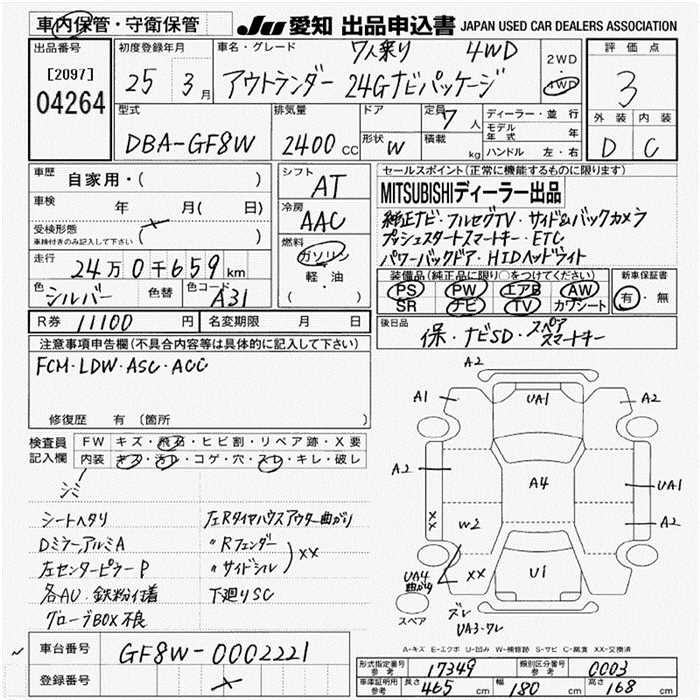 車内保管・守衛保管
JU 愛知 出品申込書 JAPAN USED CAR DEALERS ASSOCIATION
出品番号
[2097]
04264
初度登録年月
25 3月
車名・グレード 7人乗り 4WD
アウトランダー 24Gナビパッケージ
2WD
・
4WD
評価点
3
外装 内装
D C
型式
DBA-GF8W
排気量
2400 CC
ドア
形状 W
定員 7人
積載 kg
ディーラー・並行
モデル年式 年
ハンドル 左・右
車歴 自家用・( )
車検 年 月( 日)
受検形態
車検付きのみ記入して下さい ( )
走行
24万0千659km
色 シルバー 色替 色コード A31
シフト
AT
冷房
AAC
燃料
ガソリン
軽・油
( )
セールスポイント(正常に機能するものに限ります)
MITSUBISHIディーラー出品
純正ナビ・フルセグTV・サイド&バックカメラ
プッシュスタートスマートキー・ETC
パワーバックドア・HIDヘッドライト
装備品(純正品に限り○をつけてください)
PS PW エアB AW
SR ナビ TV カワシート
新車保証書
有・無
R券 11100 円 名変期限 月 日
後日品
保・ナビSD・スペアスマートキー
注意事項申告欄(不具合内容等は具体的に記入して下さい)
FCM・LDW・ASC・ACC
修復歴 有 (箇所 )
検査員記入欄
FW キズ・飛石・ヒビ割・リペア跡・X要
内装 キズ・汚レ・コゲ・穴・スレ・キレ・破レ
シミ
シートヘタリ
Dミラー,アルミA
左センターピラーP
各AU・鉄粉付着
グローブBOX不良
左Rタイヤハウスアウター曲がり
〃Rフェンダー
〃サイドシル
XX
下廻りSC
A2
A1
UA1
A2
A2
A4
UA1
A2
XX
W2
XX
U1
UA4
曲がり
ズレ
UA3・ワレ
スペア
A-キズ E-エクボ U-凹み W-補修跡 S-サビ C-腐食 XX-交換済
車台番号 GF8W-0002221
登録番号
形式指定番号参考 17349 類別区分番号参考 0003
車庫証明用参考 長さ 465 cm 幅 180 cm 高さ 168 cm